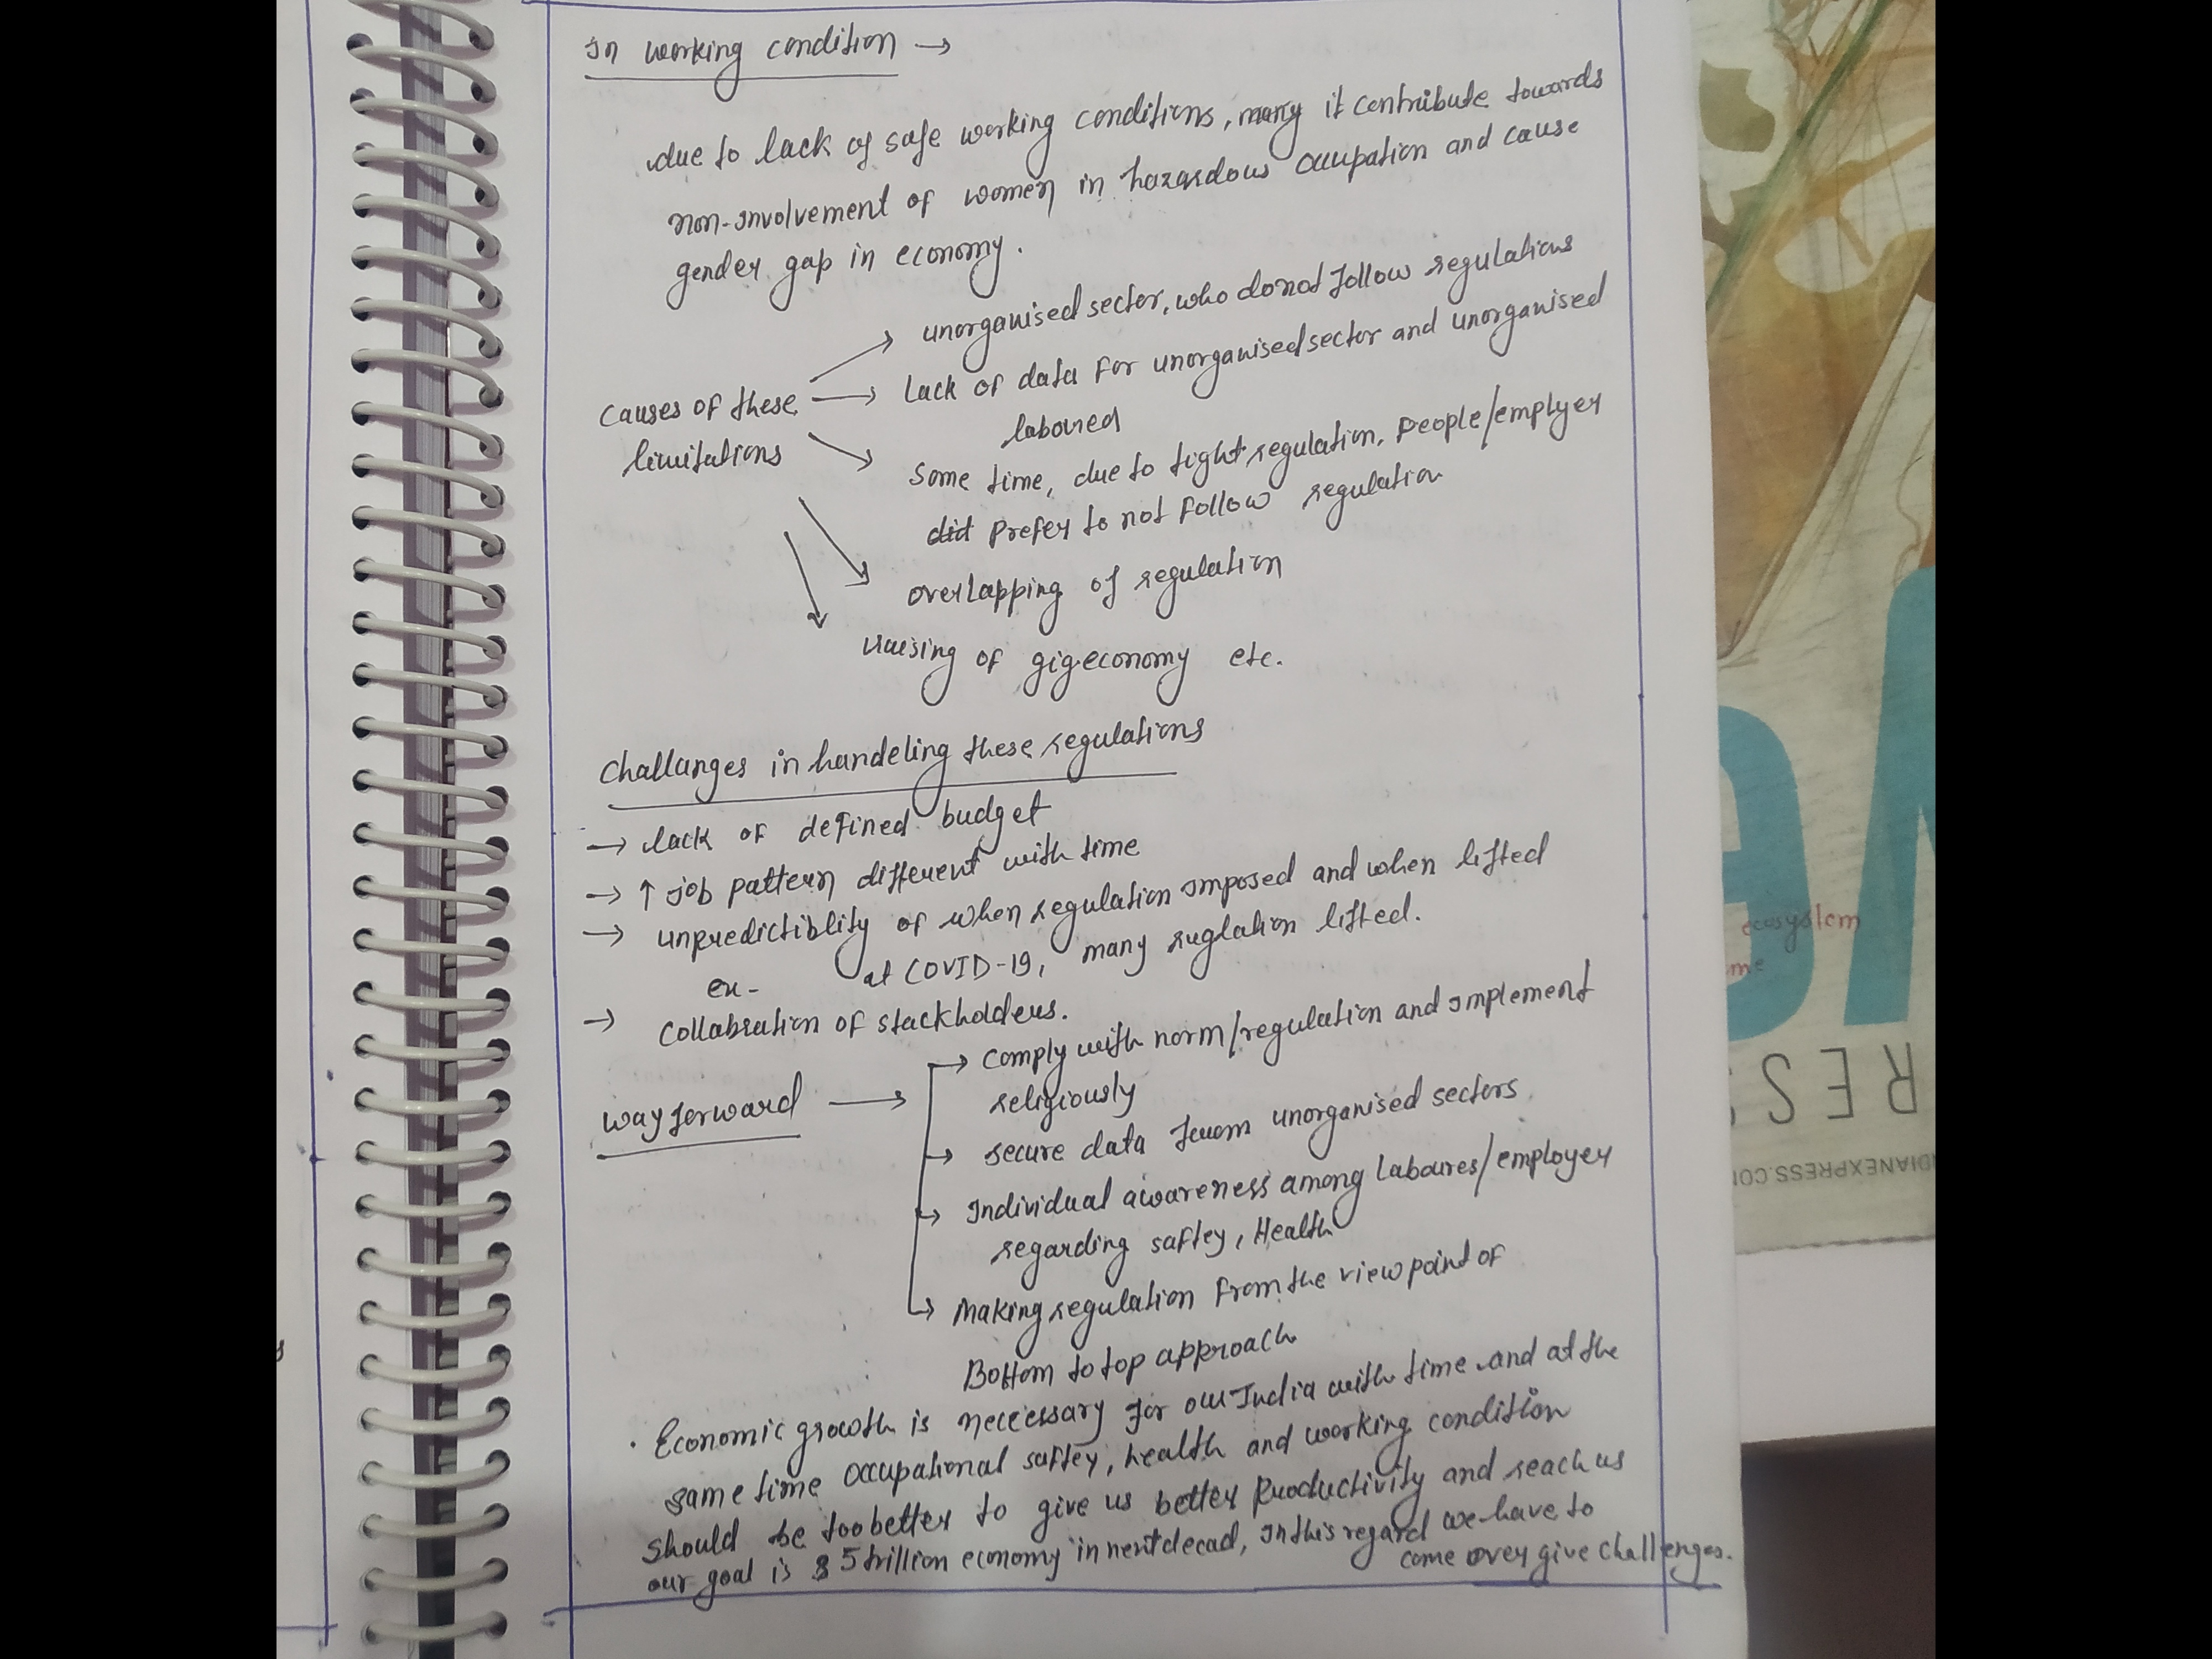 In working condition →
due to lack of safe working conditions, many it contribute towards
non-involvement of women in hazardous occupation and cause
gender gap in economy.
unorganised sector, who donot follow regulations
Lack of data for unorganised sector and unorganised
laboured
causes of these
limitations
Some time, due to tight regulation, People/emplyer
did prefer to not follow regulation
overlapping of regulation
raising of gigeconomy etc.
Challanges in handeling these regulations
→ lack of defined budget
→ ↑ job pattern different with time
→ unpredictiblity of when regulation imposed and when lifted
ex- at COVID-19, many ruglation lifted.
→ collabration of stackholders.
way forward → comply with norm/regulation and implement
religiously
→ secure data from unorganised sectors
→ Individual awareness among laboures/employer
regarding saftey, Health
→ Making regulation from the view point of
Bottom to top approach
• Economic growth is neccessary for our India with time and at the
same time occupational saftey, health and working condition
should be too better to give us better productivity and reach us
our goal is $5 trillion economy in next decad, In this regard we have to
come over give challenges.
ecosystem
me
RESS
INDIANEXPRESS.CO